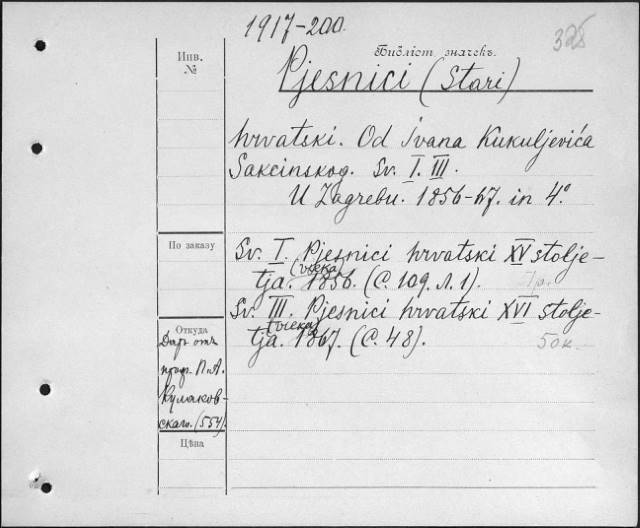 1917-200.
325
Инв.
№
Библіот. значекъ.
Pjesnici (Stari)
hrvatski. Od Ivana Kukuljevića
Sakcinskog. Sv. I. III.
U Zagrebu. 1856-67. in 4º
По заказу
Sv. I. Pjesnici hrvatski XV stolje-
(vieka)
tja. 1856. (С. 109. Л. 1).
1 р.
Sv. III. Pjesnici hrvatski XVI stolje-
(vieka)
tja. 1867. (С. 48).
50 к.
Откуда
Даръ отъ
проф. П. А.
Кулаков-
скаго. (554).
Цѣна